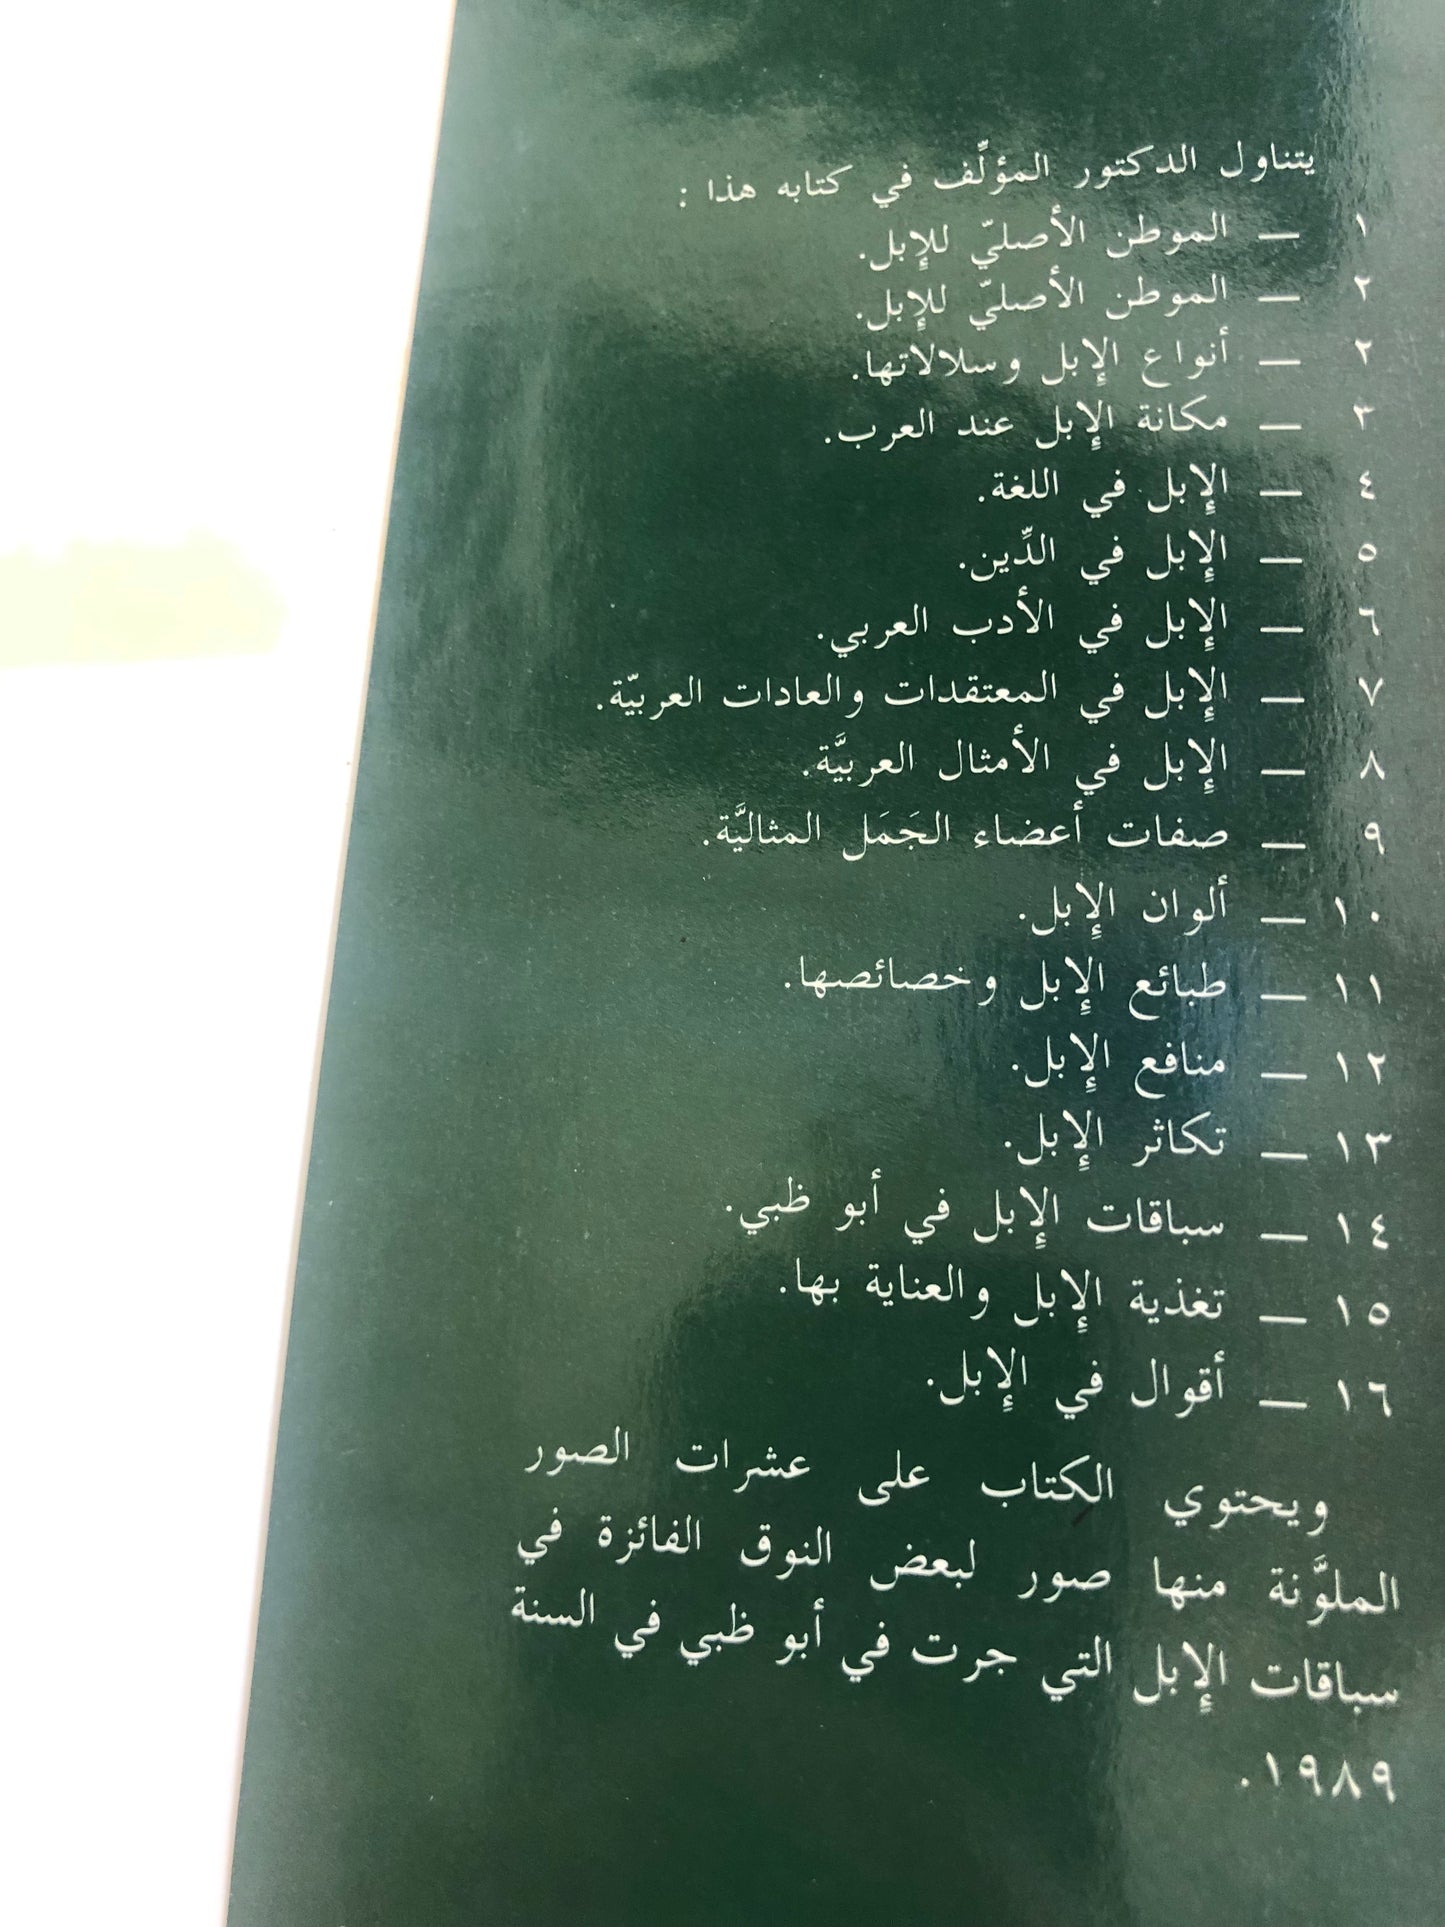 يتناول الدكتور المؤلِّف في كتابه هذا :
١ — الموطن الأصليّ للإِبل.
٢ — الموطن الأصليّ للإِبل.
٢ — أنواع الإِبل وسلالاتها.
٣ — مكانة الإِبل عند العرب.
٤ — الإِبل في اللغة.
٥ — الإِبل في الدِّين.
٦ — الإِبل في الأدب العربي.
٧ — الإِبل في المعتقدات والعادات العربيّة.
٨ — الإِبل في الأمثال العربيَّة.
٩ — صفات أعضاء الجَمَل المثاليَّة.
١٠ — ألوان الإِبل.
١١ — طبائع الإِبل وخصائصها.
١٢ — منافع الإِبل.
١٣ — تكاثر الإِبل.
١٤ — سباقات الإِبل في أبو ظبي.
١٥ — تغذية الإِبل والعناية بها.
١٦ — أقوال في الإِبل.
ويحتوي الكتاب على عشرات الصور
الملوَّنة منها صور لبعض النوق الفائزة في
سباقات الإِبل التي جرت في أبو ظبي في السنة
١٩٨٩.